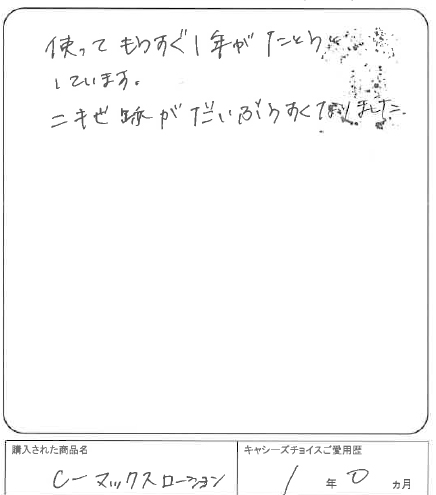 使ってもうすぐ1年がたとうと
しています。
ニキビ跡がだいぶうすくなりました。
購入された商品名
キャシーズチョイスご愛用歴
C-マックスローション
1年0ヵ月